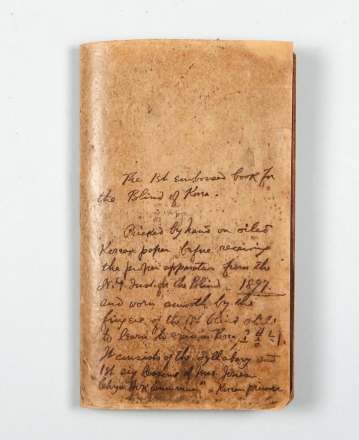 The 1st embossed book for
the Blind of Korea.
Pricked by hand on oiled
Korean paper before receiving
the proper apparatus from the
N.Y. Inst. for the Blind - 1897
and worn smooth by the
fingers of the 1st blind
to learn to read in Korea
It consists of the Syllabary and
1st six lessons of Mrs Jones
Korean primer